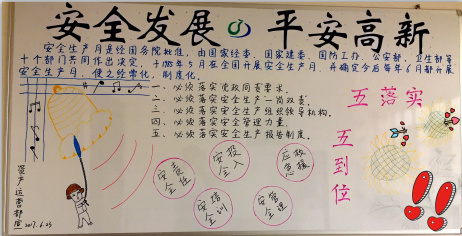 安全发展 平安高新
安全生产月是经国务院批准，由国家经委、国家建委、国防工办、公安部、卫生部等
十个部门共同作出决定，于1980年5月在全国开展安全生产月，并确定今后每年6月都开展
安全生产月，使之经常化，制度化。
一、必须落实党政同责要求。
二、必须落实安全生产一岗双责。
三、必须落实安全生产组织领导机构。
四、必须落实安全管理力量。
五、必须落实安全生产报告制度。
五落实
五到位
安全责任
安全投入
应急救援
安全培训
安全管理
资产运营部宣
2017.6.23